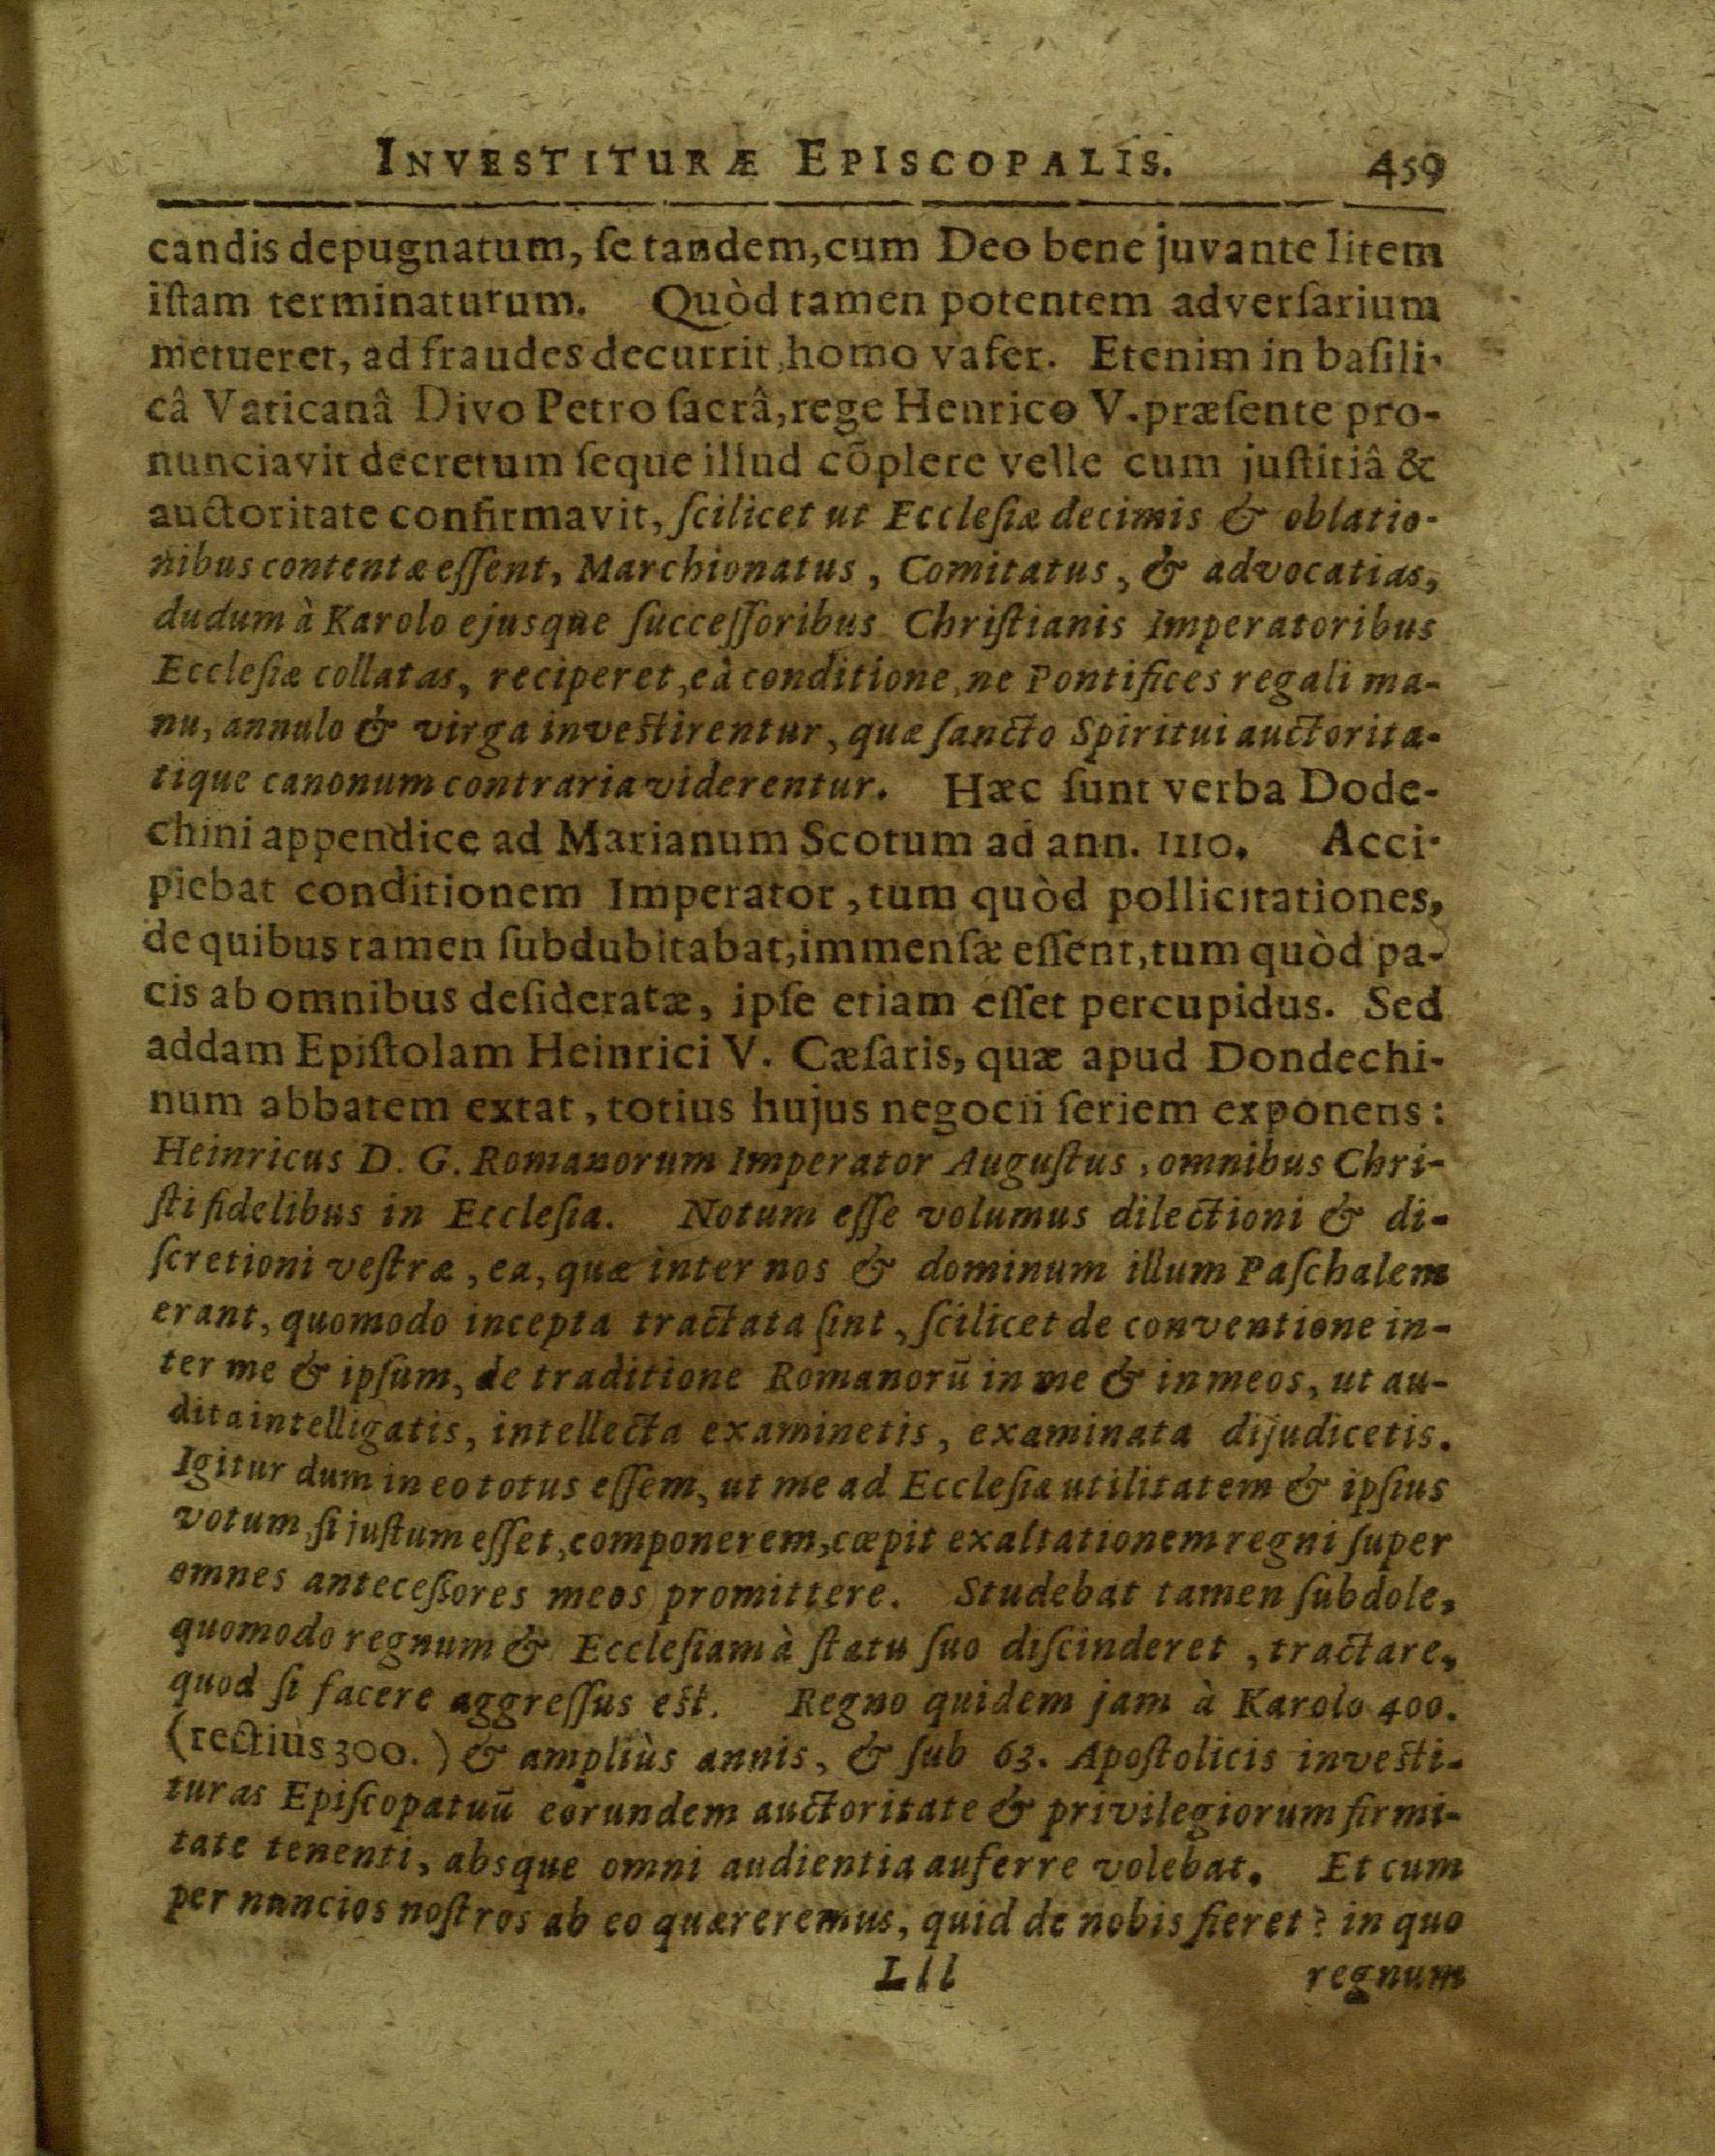 INVESTITURÆ EPISCOPALIS. 459
candis depugnatum, ſe tandem, cum Deo bene juvante litem
iſtam terminaturum. Quòd tamen potentem adverſarium
metueret, ad fraudes decurrit homo vafer. Etenim in baſili-
câ Vaticanâ Divo Petro ſacrâ, rege Henrico V. præſente pro-
nunciavit decretum ſeque illud cõplere velle cum juſtitiâ &
auctoritate confirmavit, ſcilicet ut Eccleſiæ decimis & oblatio-
nibus contentæ eſſent, Marchionatus, Comitatus, & advocatias,
dudum à Karolo ejusque ſucceſſoribus Chriſtianis Imperatoribus
Eccleſiæ collatas, reciperet, eà conditione, ne Pontifices regali ma-
nu, annulo & virga inveſtirentur, quæ ſancto Spiritui auctorita-
tique canonum contraria viderentur. Hæc ſunt verba Dode-
chini appendice ad Marianum Scotum ad ann. 1110. Acci-
piebat conditionem Imperator, tum quòd pollicitationes,
de quibus tamen ſubdubitabat, immenſæ eſſent, tum quòd pa-
cis ab omnibus deſideratæ, ipſe etiam eſſet percupidus. Sed
addam Epiſtolam Heinrici V. Cæſaris, quæ apud Dondechi-
num abbatem extat, totius hujus negocii ſeriem exponens:
Heinricus D. G. Romanorum Imperator Auguſtus, omnibus Chri-
ſti fidelibus in Eccleſia. Notum eſſe volumus dilectioni & di-
ſcretioni veſtræ, ea, quæ inter nos & dominum illum Paſchalem
erant, quomodo incepta tractata ſint, ſcilicet de conventione in-
ter me & ipſum, de traditione Romanorũ in me & in meos, ut au-
dita intelligatis, intellecta examinetis, examinata dijudicetis.
Igitur dum in eo totus eſſem, ut me ad Eccleſiæ utilitatem & ipſius
votum, ſi juſtum eſſet, componerem, cœpit exaltationem regni ſuper
omnes anteceſſores meos promittere. Studebat tamen ſubdole,
quomodo regnum & Eccleſiam à ſtatu ſuo diſcinderet, tractare,
quod ſi facere aggreſſus eſt. Regno quidem jam à Karolo 400.
(rectiùs 300.) & ampliùs annis, & ſub 63. Apoſtolicis inveſti-
turas Epiſcopatuũ eorundem auctoritate & privilegiorum firmi-
tate tenenti, absque omni audientia auferre volebat. Et cum
per nuncios noſtros ab eo quæreremus, quid de nobis fieret? in quo
Lll regnum